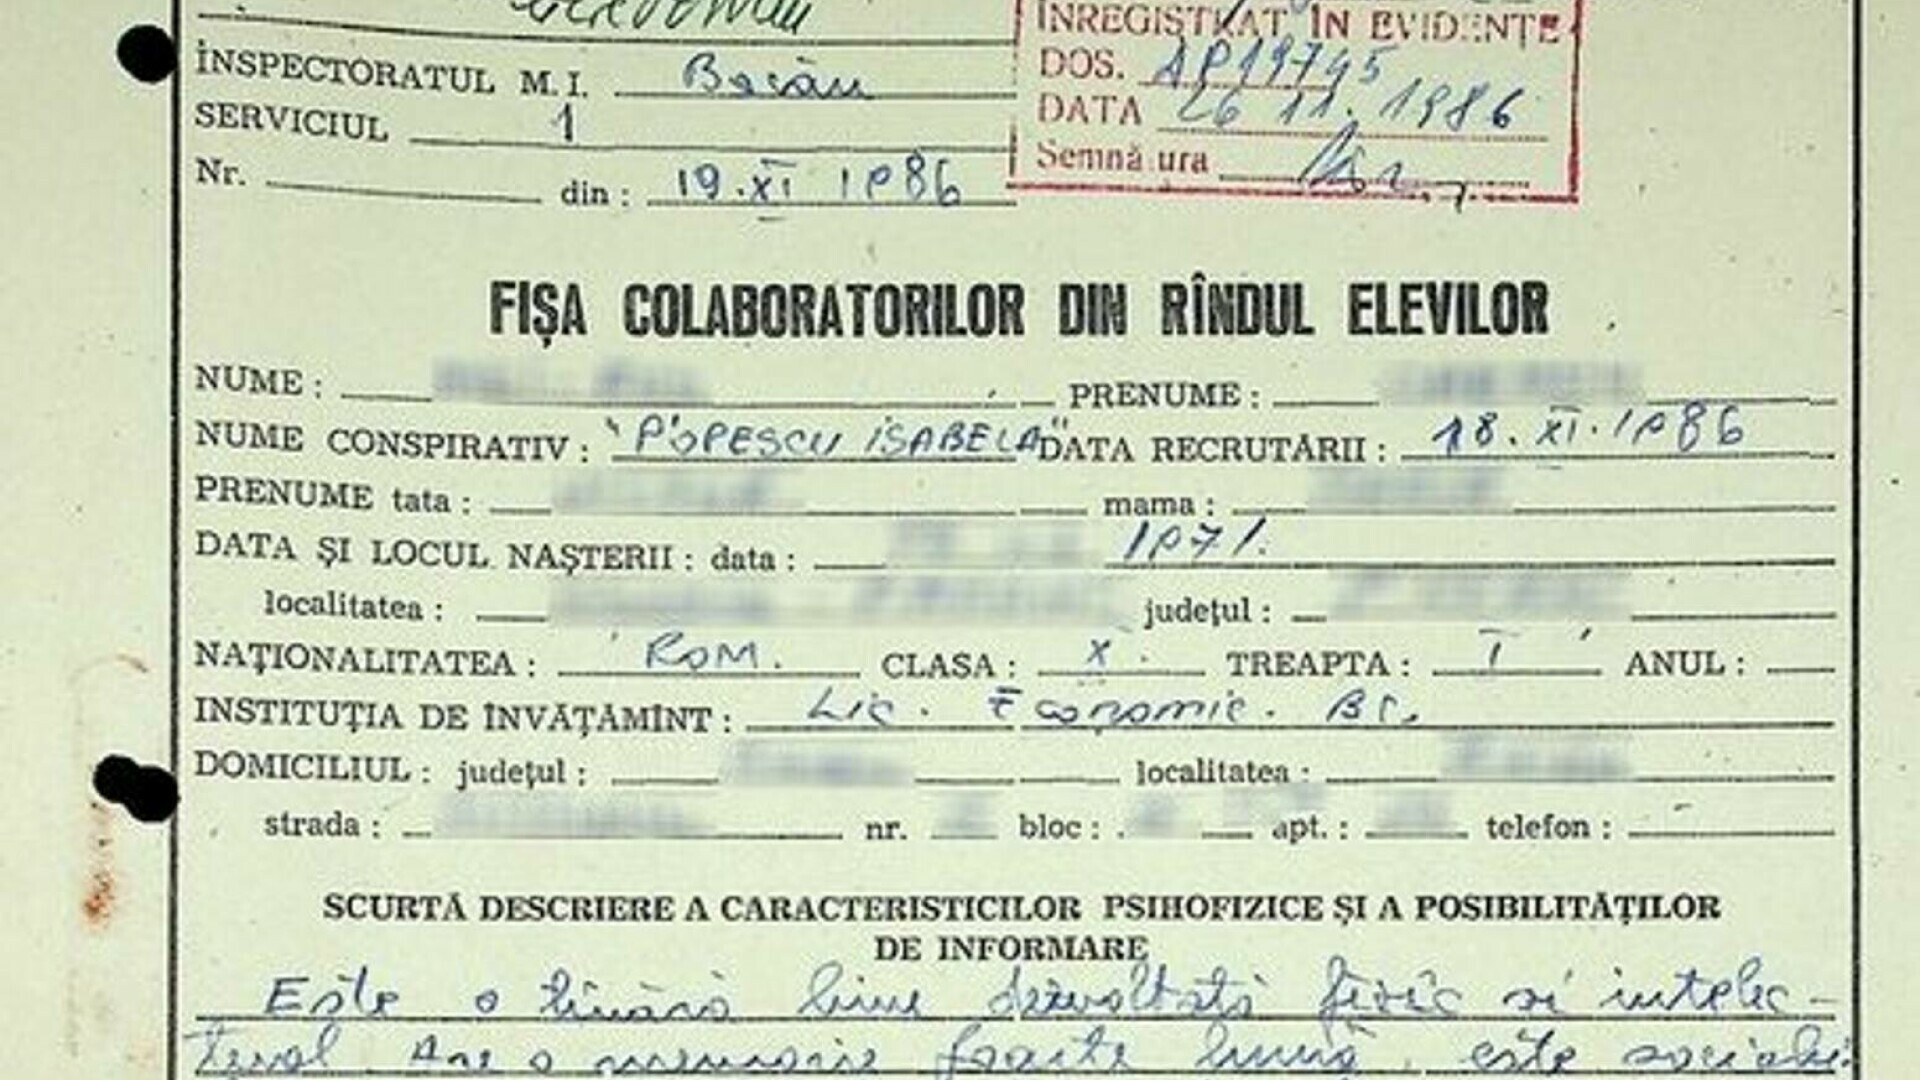 ÎNREGISTRAT ÎN EVIDENȚE
INSPECTORATUL M. I. Bacău
DOS. AP19745
SERVICIUL 1
DATA 26 11. 1986
Nr. din : 19.XI 1986
Semnă ura
FIȘA COLABORATORILOR DIN RÎNDUL ELEVILOR
NUME : PRENUME :
NUME CONSPIRATIV : "POPESCU ISABELA" DATA RECRUTĂRII : 18.XI.1986
PRENUME tata : mama :
DATA ȘI LOCUL NAȘTERII : data : 1971.
localitatea : județul :
NAȚIONALITATEA : ROM. CLASA : X. TREAPTA : I ANUL :
INSTITUȚIA DE ÎNVĂȚĂMÎNT : Lic. Economic. Bc.
DOMICILIUL : județul : localitatea :
strada : nr. bloc : apt. : telefon :
SCURTĂ DESCRIERE A CARACTERISTICILOR PSIHOFIZICE ȘI A POSIBILITĂȚILOR
DE INFORMARE
Este o tînără bine dezvoltată fizic și intelec-
tual. Are o memorie foarte bună, este sociabi